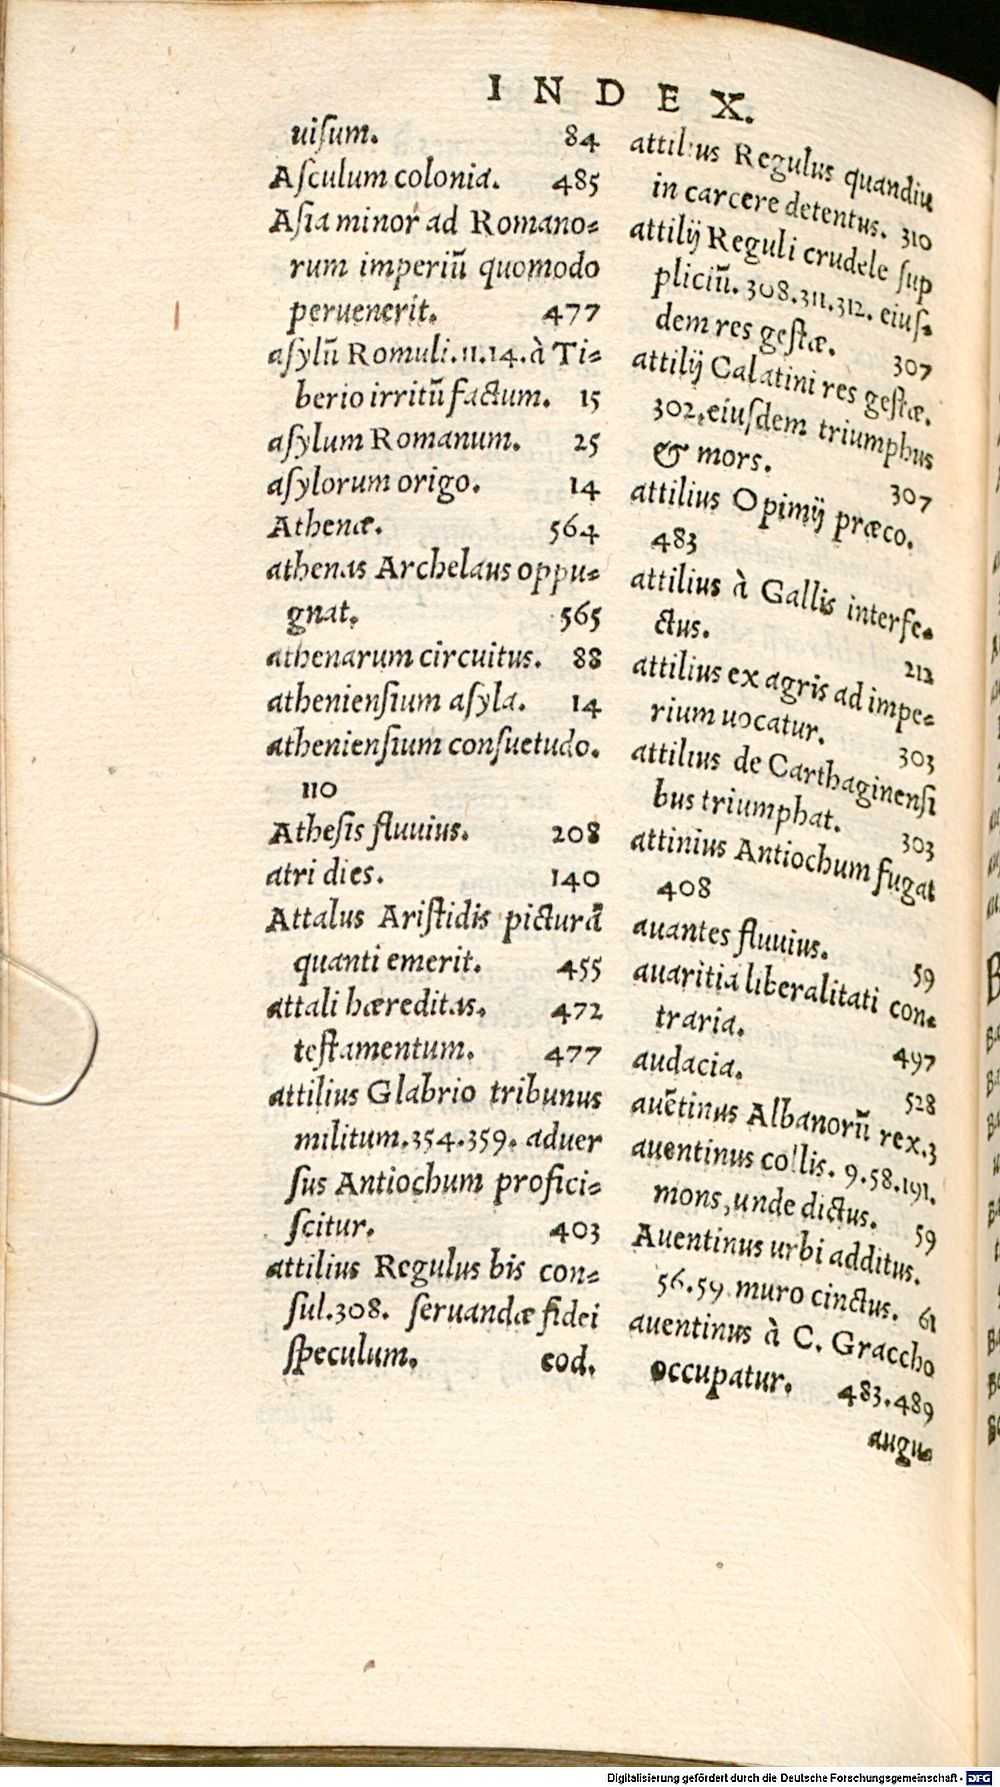 INDEX.
uiſum. 84
Aſculum colonia. 485
Aſia minor ad Romano=
rum imperiũ quomodo
peruenerit. 477
aſylũ Romuli.11.14.à Ti=
berio irritũ factum. 15
aſylum Romanum. 25
aſylorum origo. 14
Athenæ. 564
athenas Archelaus oppu=
gnat. 565
athenarum circuitus. 88
athenienſium aſyla. 14
athenienſium conſuetudo.
110
Atheſis fluuius. 208
atri dies. 140
Attalus Ariſtidis picturã
quanti emerit. 455
attali hæreditas. 472
teſtamentum. 477
attilius Glabrio tribunus
militum.354.359. aduer
ſus Antiochum profici=
ſcitur. 403
attilius Regulus bis con=
ſul.308. ſeruandæ fidei
ſpeculum. eod.
attilius Regulus quandiu
in carcere detentus. 310
attilij Reguli crudele ſup
pliciũ.308.311.312. eiuſ=
dem res geſtæ. 307
attilij Calatini res geſtæ.
302.eiuſdem triumphus
& mors. 307
attilius Opimij præco.
483
attilius à Gallis interfe=
ctus. 212
attilius ex agris ad impe=
rium uocatur. 303
attilius de Carthaginenſi
bus triumphat. 303
attinius Antiochum fugat
408
auantes fluuius. 59
auaritia liberalitati con=
traria. 497
audacia. 528
auẽtinus Albanorũ rex.3
auentinus collis. 9.58.191.
mons,unde dictus. 59
Auentinus urbi additus.
56.59 muro cinctus. 61
auentinus à C. Graccho
occupatur. 483.489
augu=
Digitalisierung gefördert durch die Deutsche Forschungsgemeinschaft - DFG